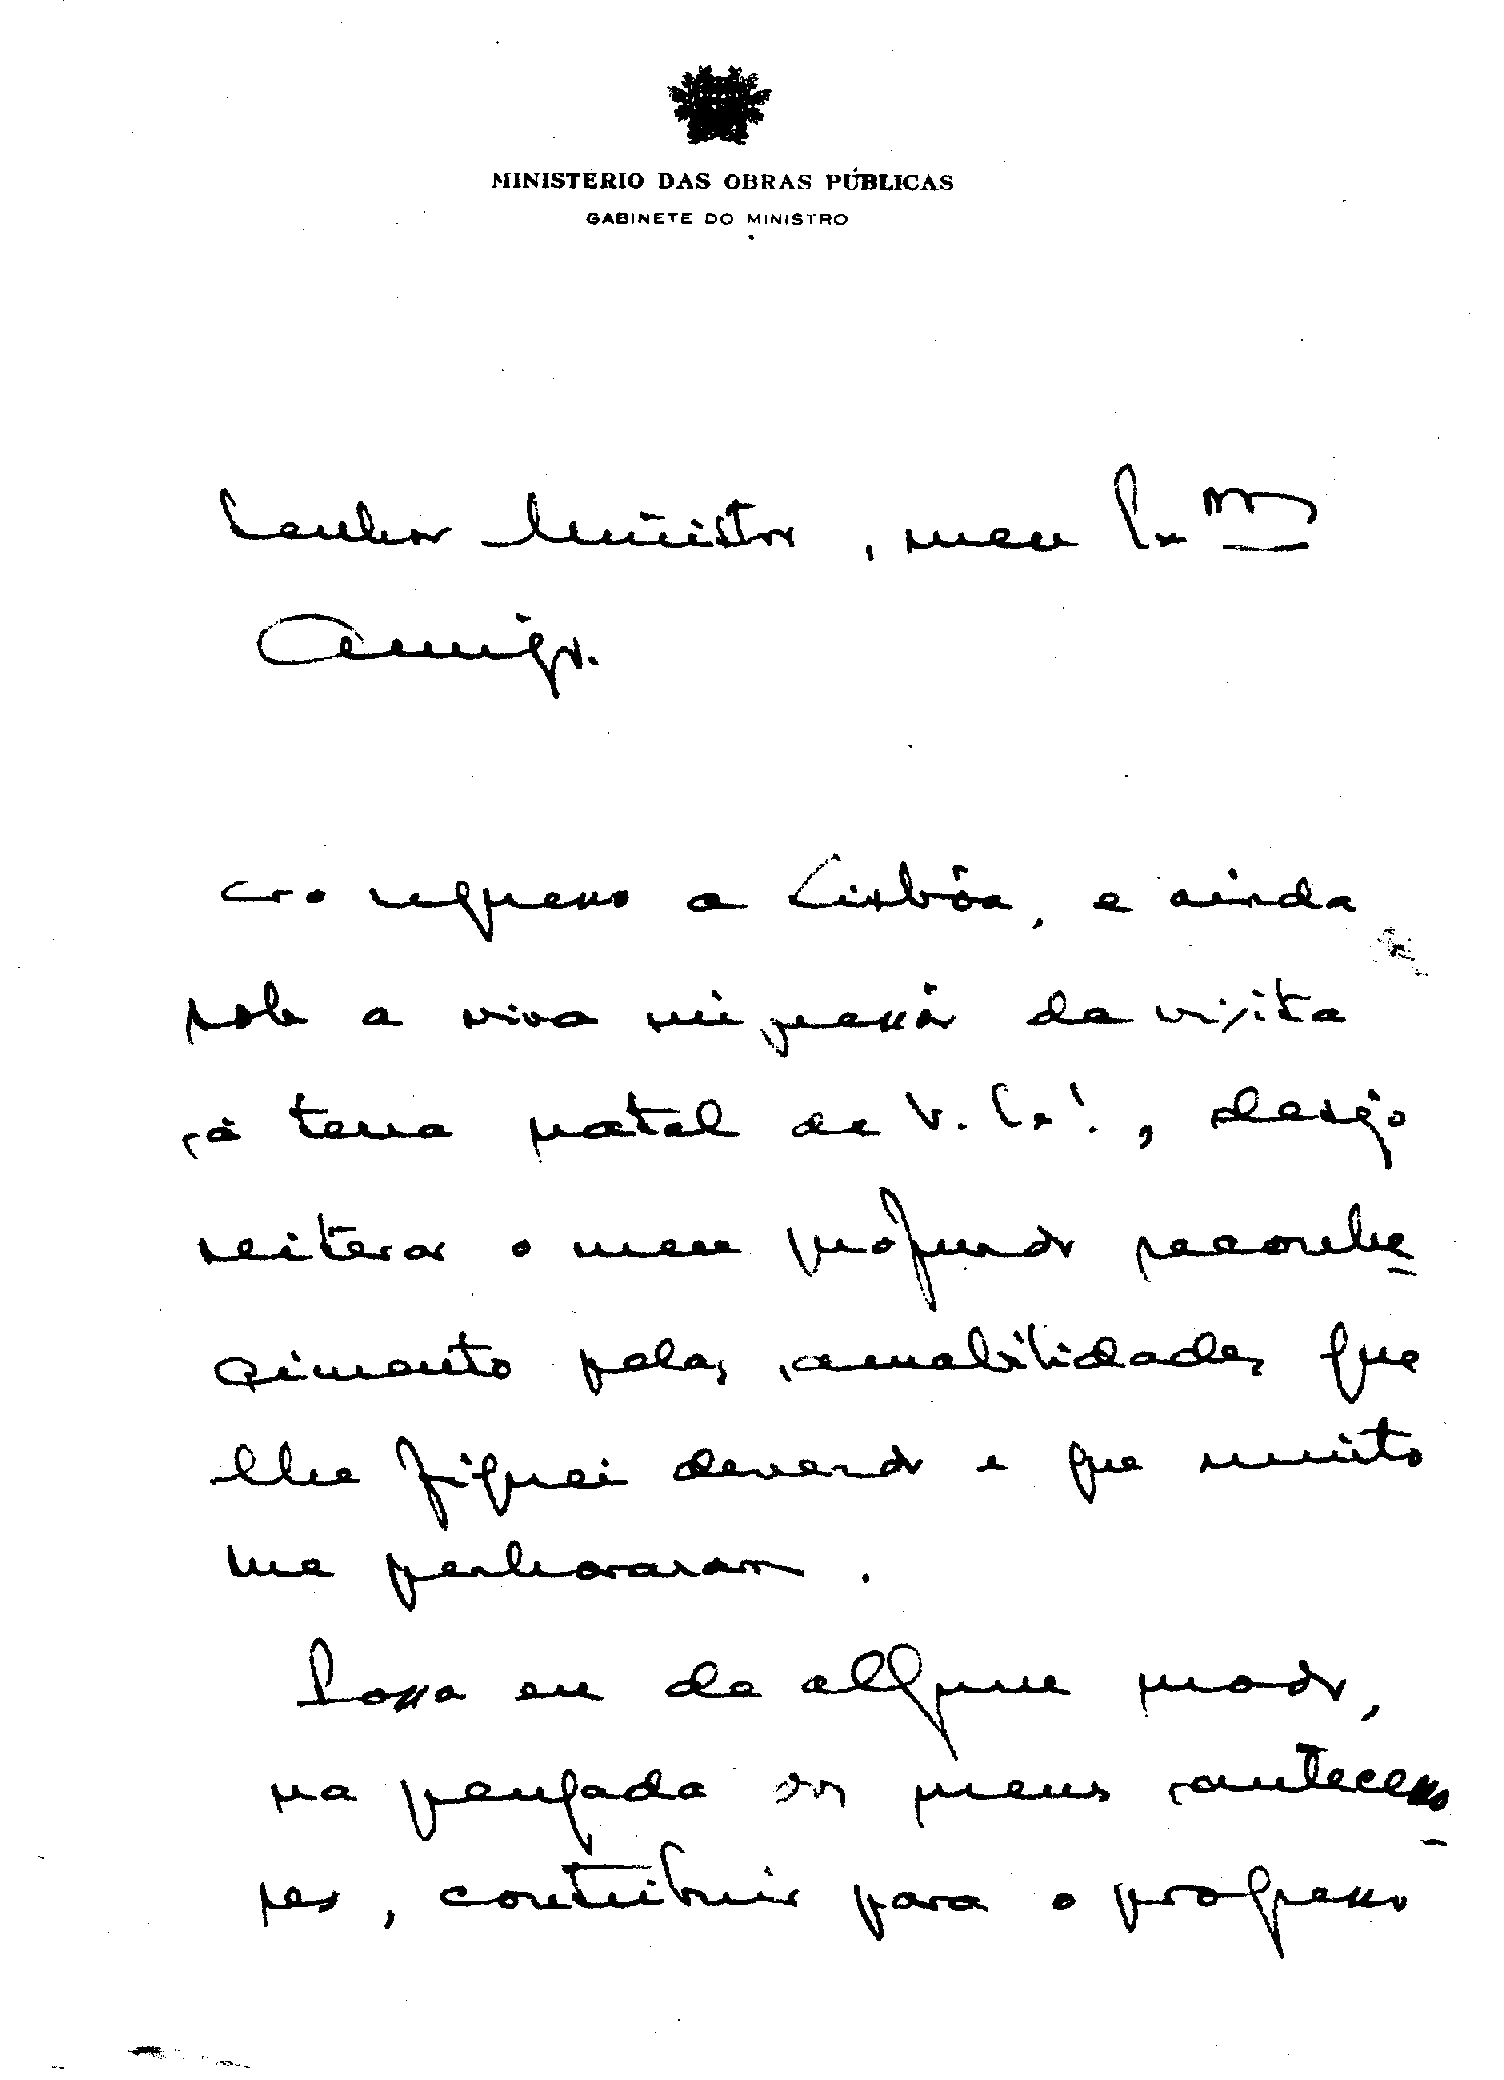 MINISTÉRIO DAS OBRAS PÚBLICAS
GABINETE DO MINISTRO
Senhor Ministro, meu Exmo
Amigo.
Ao regresso a Lisbôa, e ainda
sob a viva impressão da visita
à terra natal de V. Exª., desejo
reiterar o meu profundo reconhe-
cimento pelas amabilidades que
lhe fiquei devendo e que muito
me penhoraram.
Possa eu de algum modo,
na peugada dos meus antecesso-
res, contribuir para o progresso